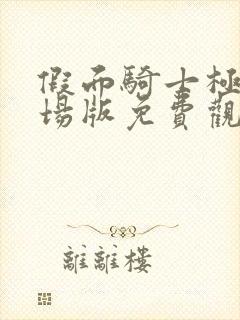 假面騎士極
場版免費觀
離離樓